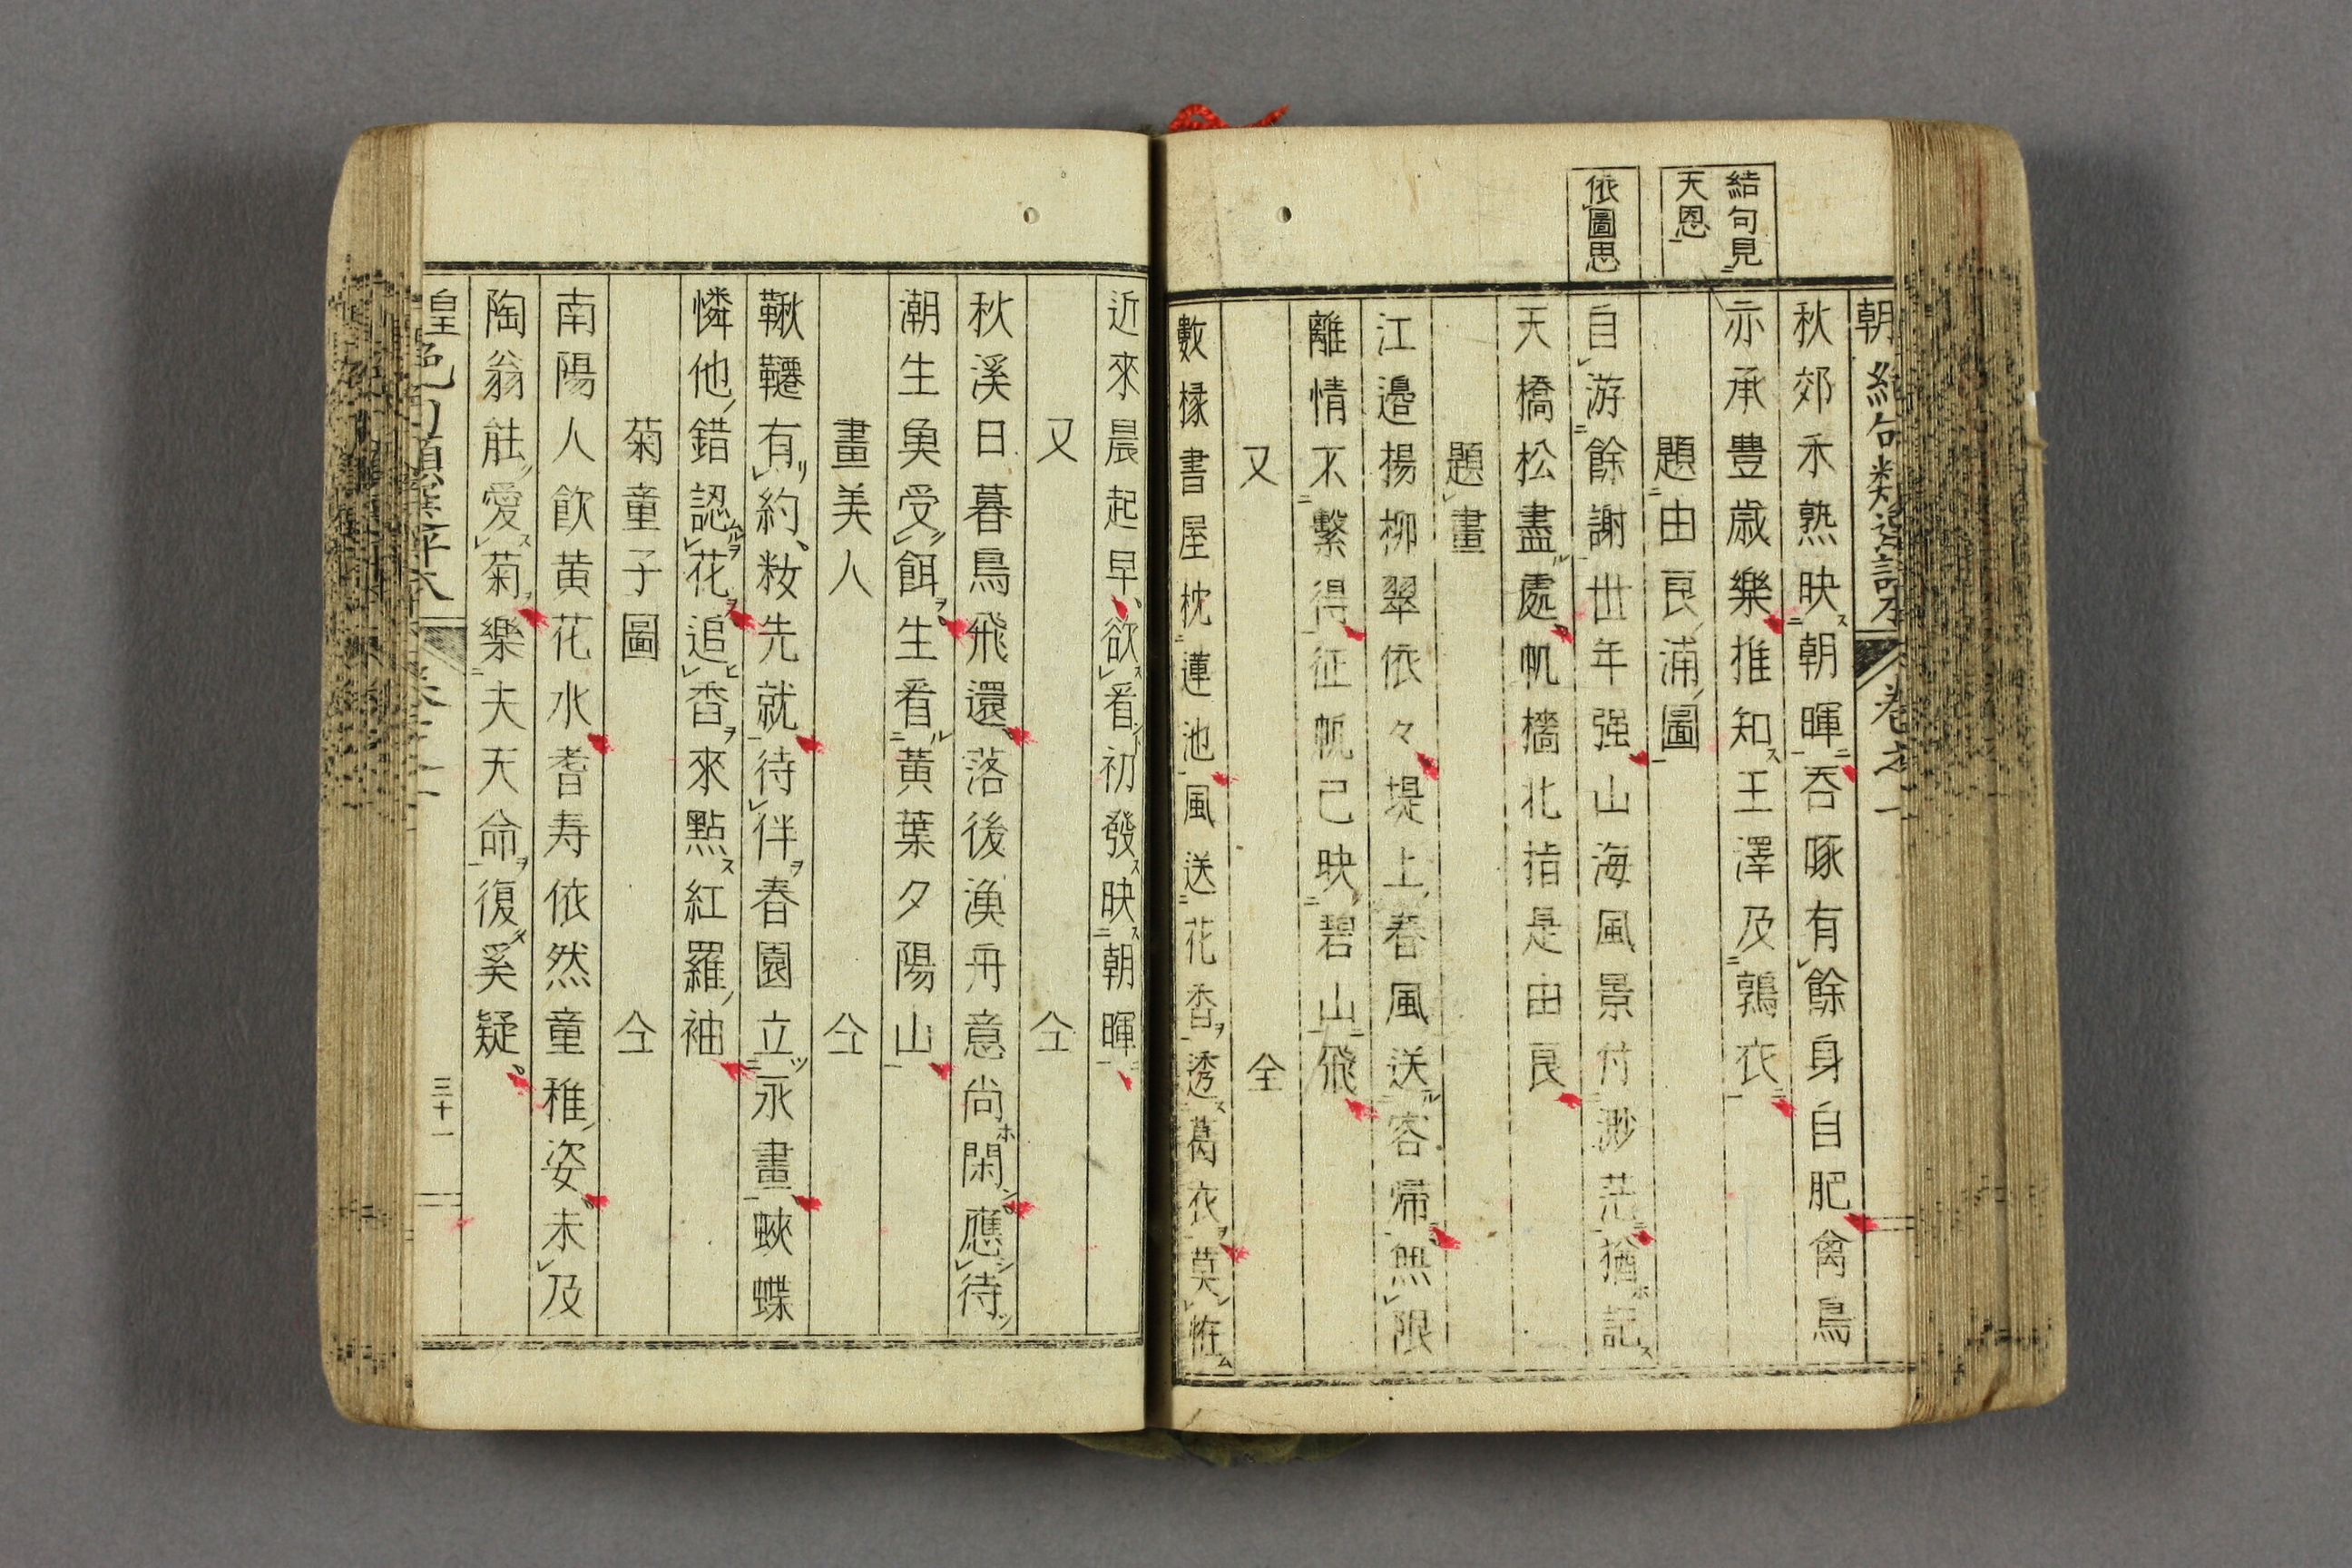 結句見
天恩
依圖思
秋郊禾熟映朝暉呑啄有餘身自肥禽鳥
亦承豊歳樂推知王澤及鶉衣
題由良浦圖
自游餘謝世年强山海風景付渺茫猶記
天橋松盡處帆檣北指是由良
題畫
江邉楊柳翠依々堤上春風送客帰無限
離情不繋得征帆已映碧山飛
又 仝
數椽書屋枕蓮池風送花香透葛衣莫恠
近來晨起早欲看初發映朝暉
又 仝
秋溪日暮鳥飛還落後漁舟意尚閑應待
潮生魚受餌生看黄葉夕陽山
畫美人 仝
鞦韆有約敉先就待待伴春園立永晝蛺蝶
憐他錯認花追香來點紅羅袖
菊童子圖 仝
南陽人飮黄花水耆寿依然童稚姿未及
陶翁能愛菊樂夫天命復奚疑
三十一